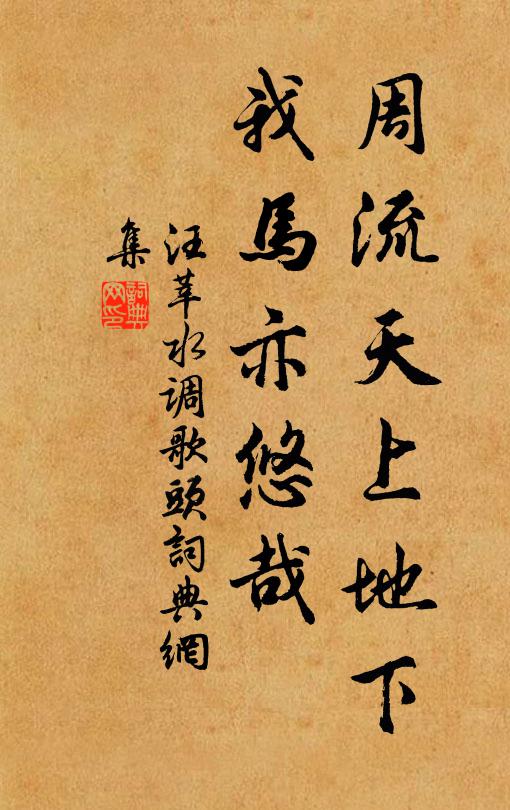 周流天上地下
我馬亦悠哉
汪莘水调歌頭詞典網
集
詞典
网印